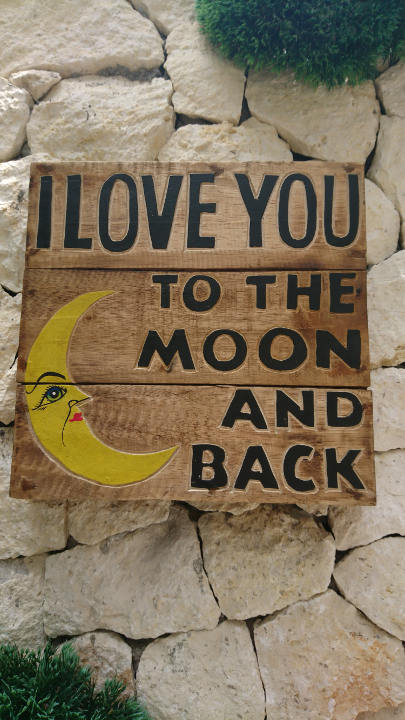 I LOVE YOU
TO THE
MOON
AND
BACK